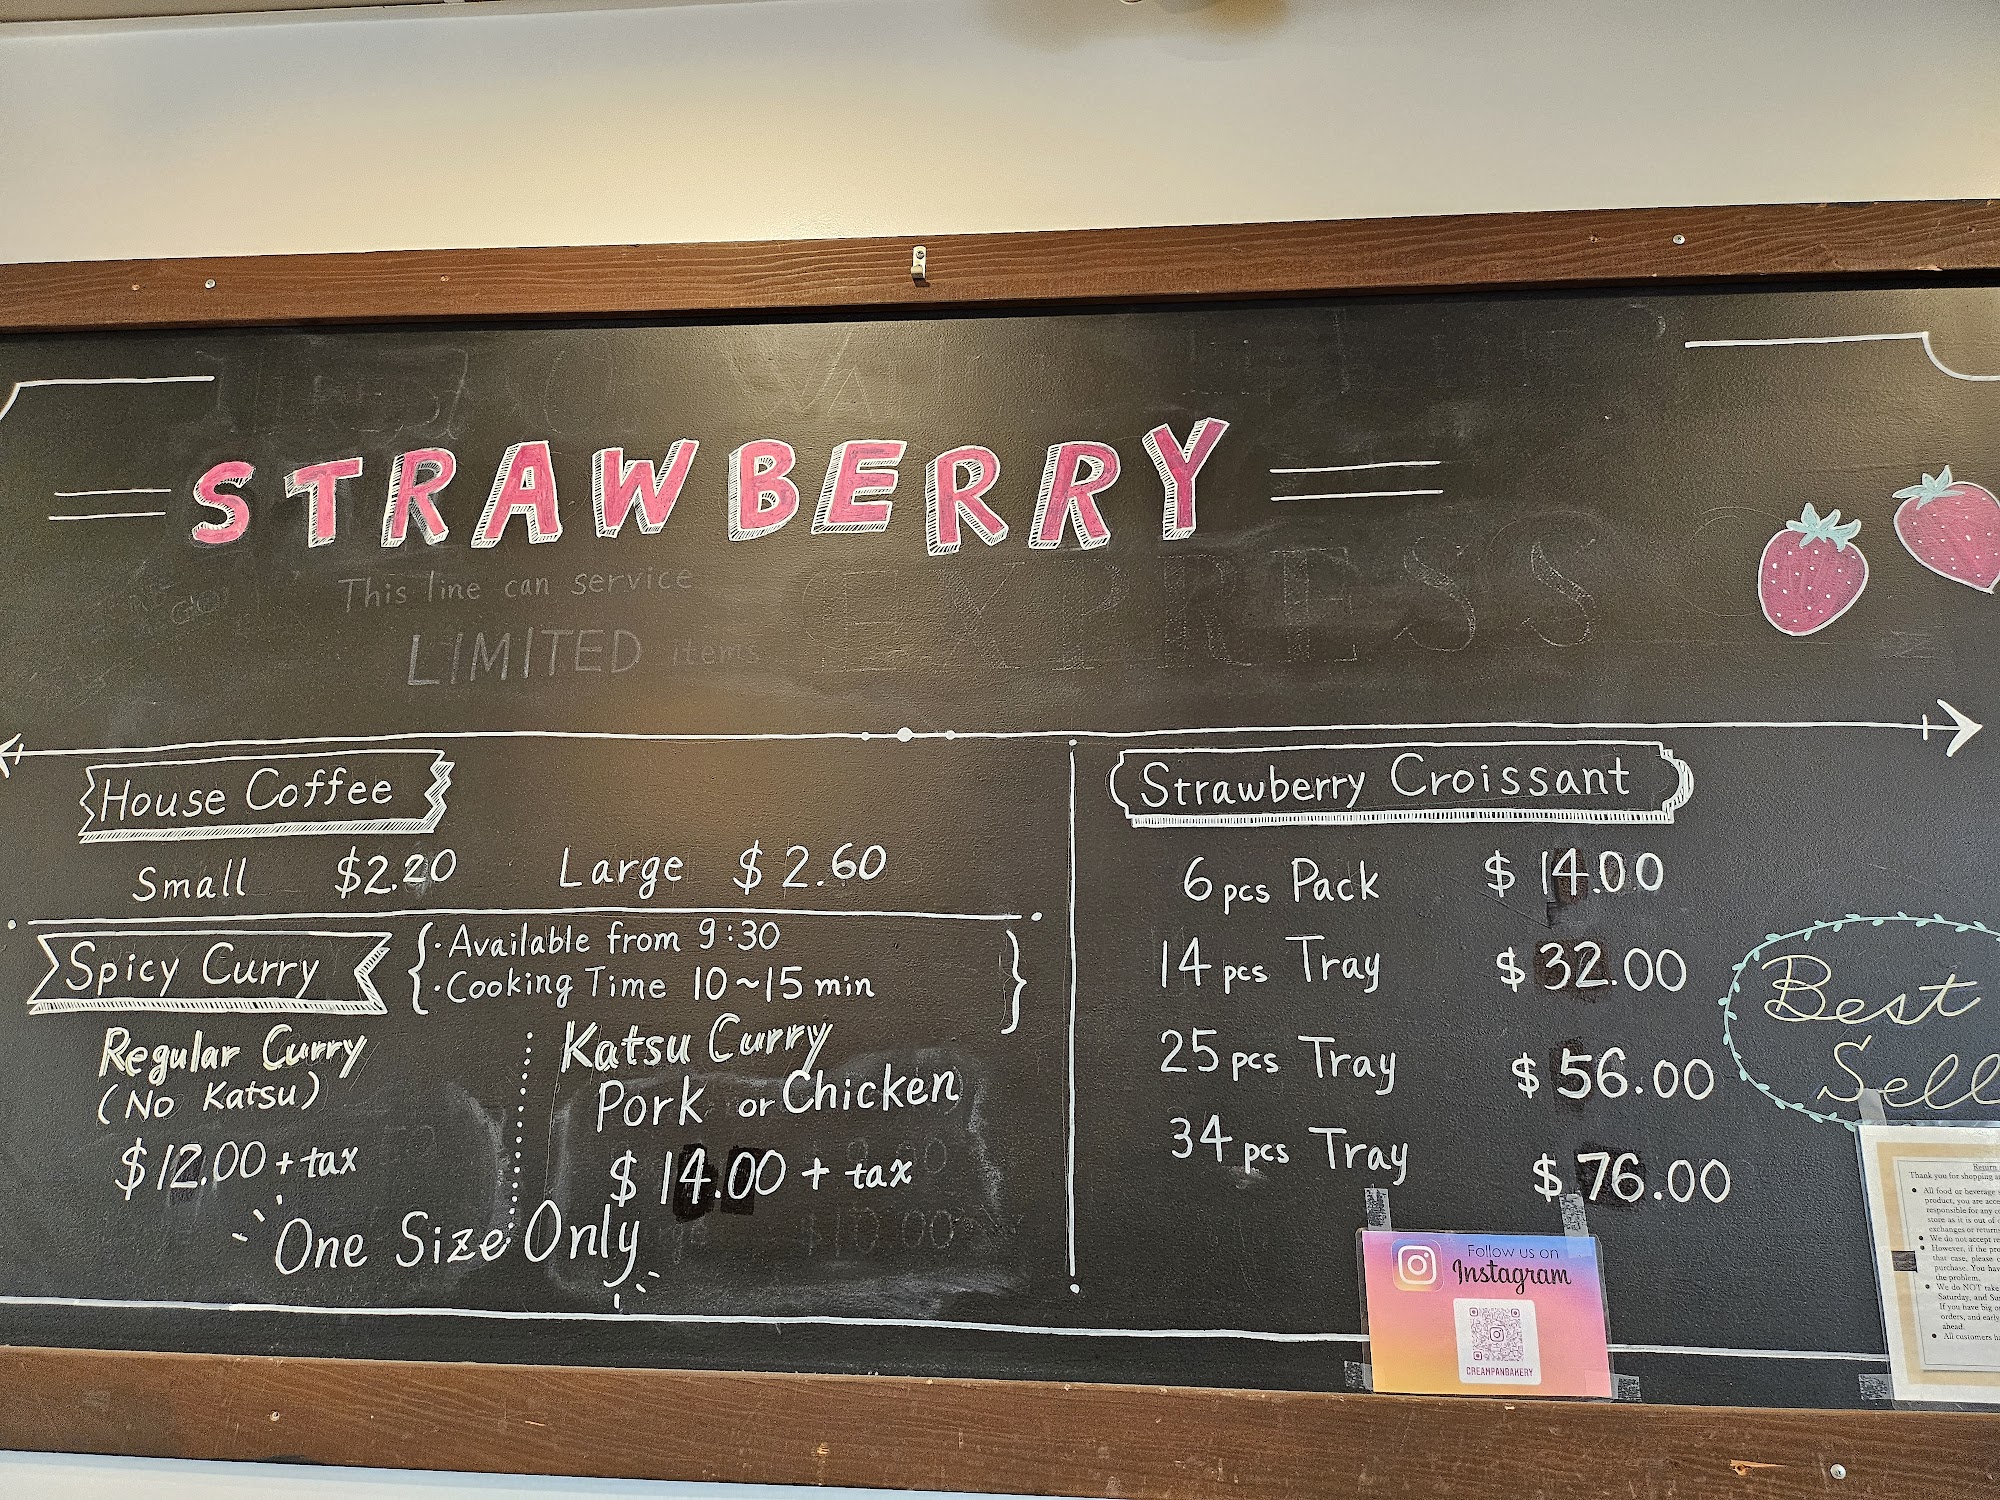 STRAWBERRY
This line can service
LIMITED items
EXPRESS
House Coffee
Small $2.20 Large $2.60
Spicy Curry
· Available from 9:30
· Cooking Time 10~15 min
Regular Curry
(No Katsu)
$12.00 + tax
Katsu Curry
Pork or Chicken
$14.00 + tax
One Size Only
Strawberry Croissant
6 pcs Pack $14.00
14 pcs Tray $32.00
25 pcs Tray $56.00
34 pcs Tray $76.00
Best
Sell
Follow us on
Instagram
CREAMPANBAKERY
Return
Thank you for shopping
• All food or beverage
product, you are
responsible for any
store as it is out of
exchanges or
• We do not accept
• However, if the
that case, please
purchase. You
the problem.
• We do NOT take
Saturday, and
If you have big
orders, and early
ahead.
• All customers